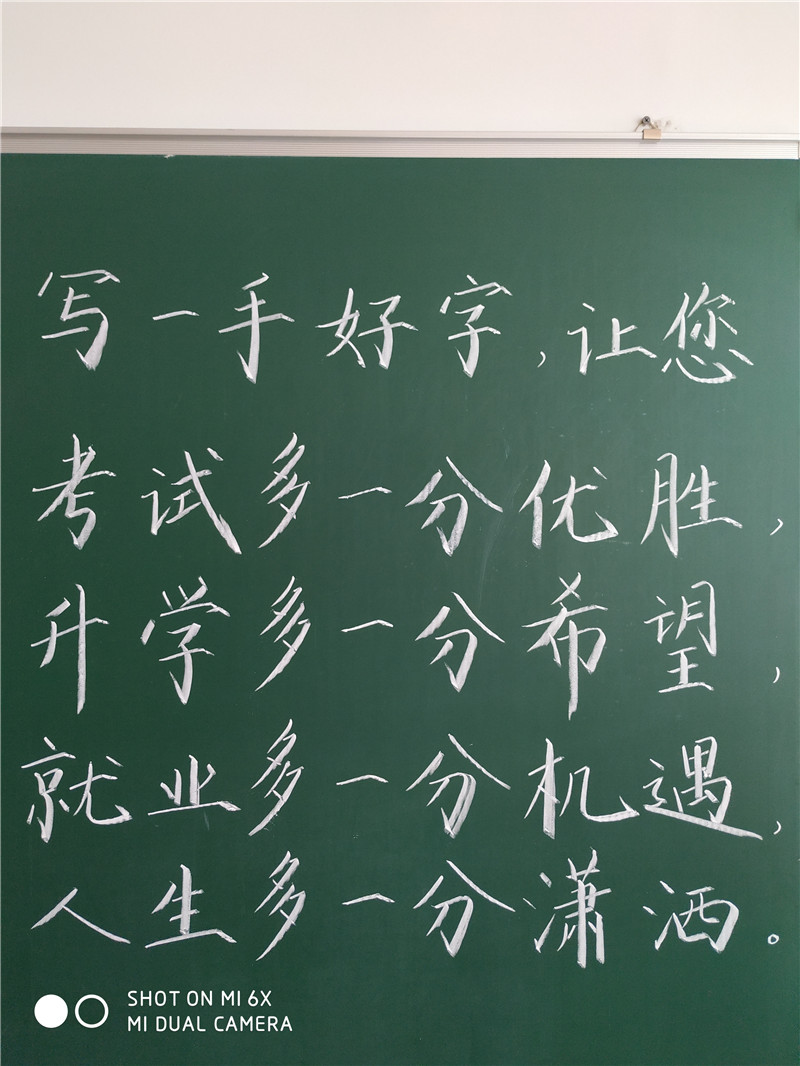 写一手好字,让您
考试多一分优胜,
升学多一分希望,
就业多一分机遇,
人生多一分潇洒。
SHOT ON MI 6X
MI DUAL CAMERA